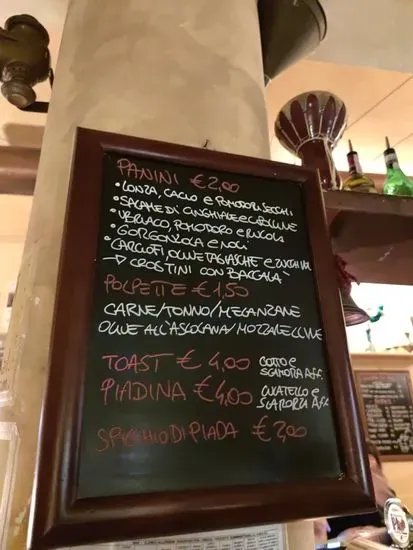 PANINI €2,00
• LONZA, CACIO E POMODORI SECCHI
• SALAME DI CINGHIALE E CIPOLLINE
• UBRIACO, POMODORO E RUCOLA
• GORGONZOLA E NOCI
• CARCIOFI, OLIVE TAGIASCHE E ZUCCHINE
→ CROSTINI CON BACCALÀ
POLPETTE €1,50
CARNE/TONNO/MELANZANE
OLIVE ALL'ASCOLANA/MOZZARELLINE
TOAST €4,00 COTTO E
SCAMORZA AFF.
PIADINA €4,00 CULATELLO E
SCAMORZA AFF.
SPICCHIO DI PIADA €2,00